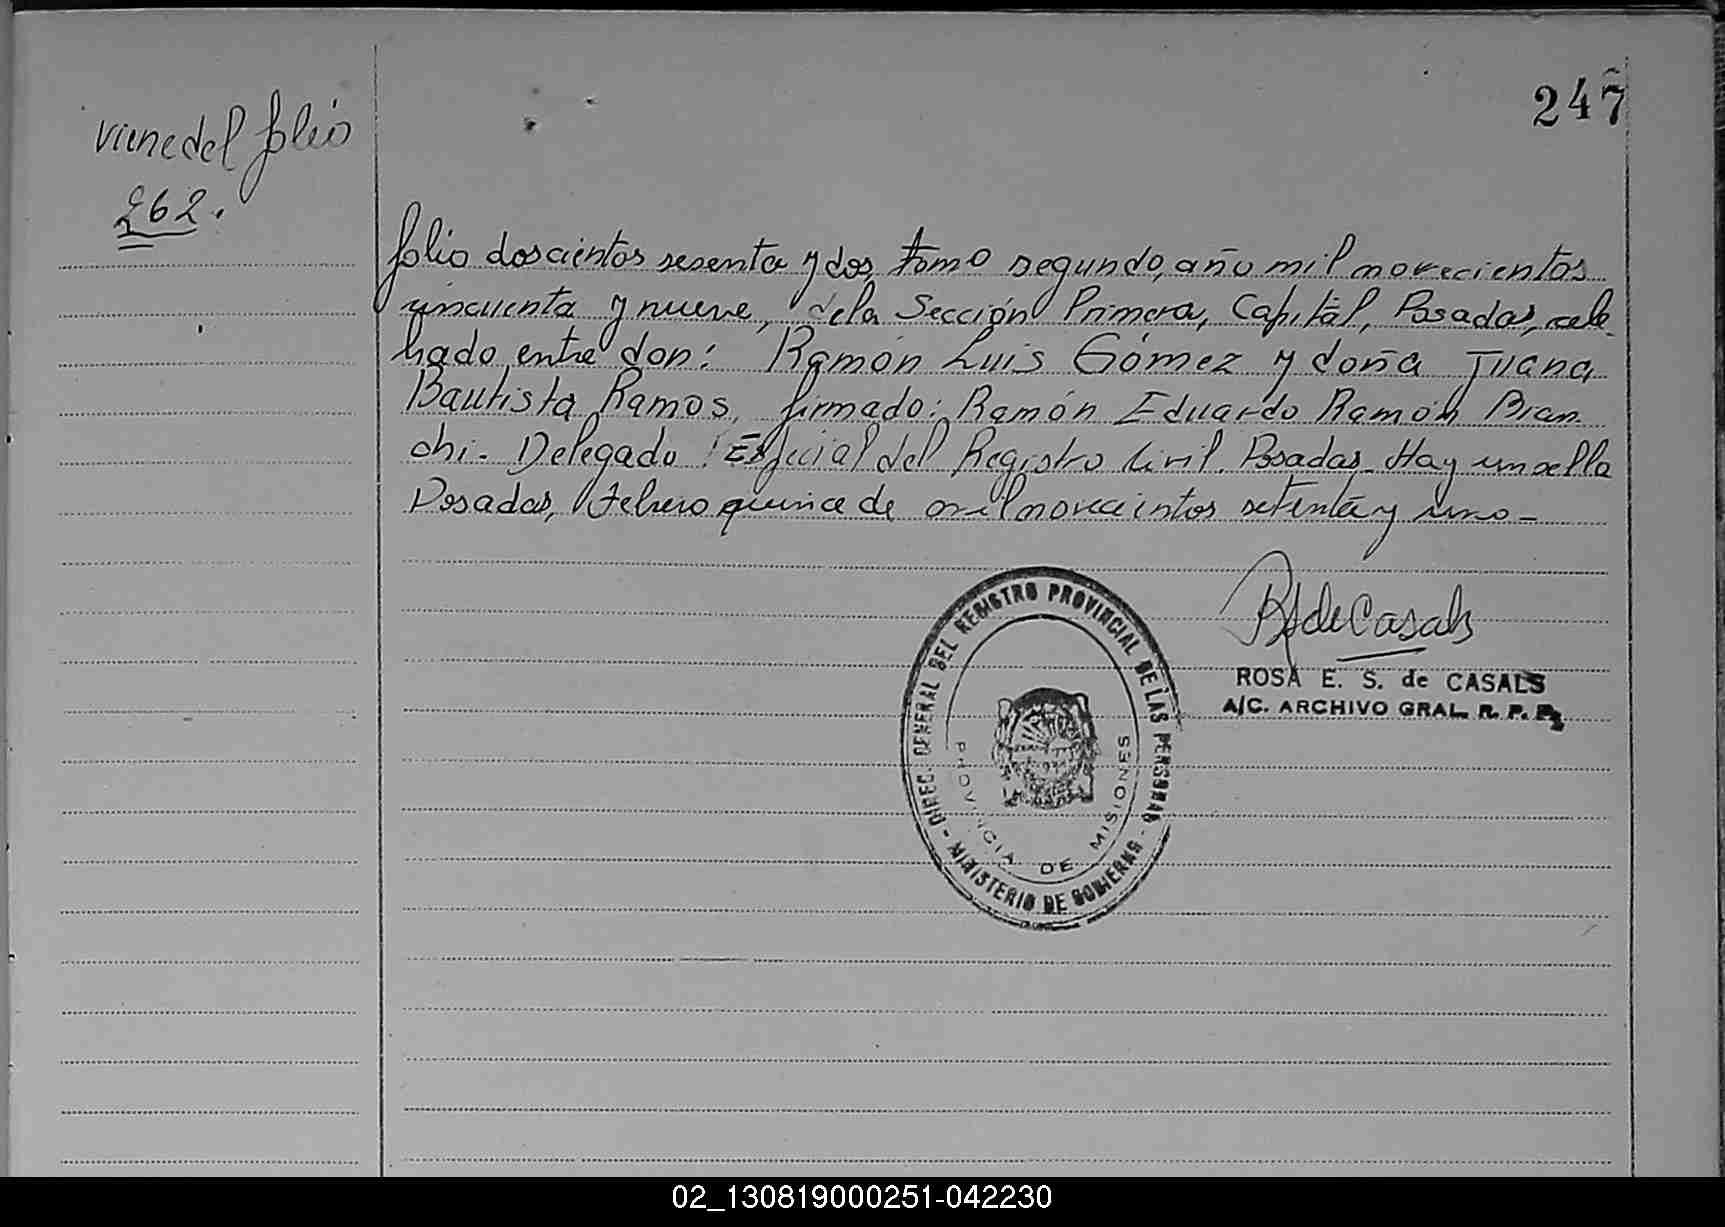 247
viene del folio
262.
folio doscientos sesenta y dos, tomo segundo, año mil novecientos
cincuenta y nueve, de la Sección Primera, Capital, Posadas, cele
brado entre don: Ramón Luis Gómez y doña Juana
Bautista Ramos, firmado: Ramón Eduardo Ramón Bian
chi. Delegado Especial del Registro Civil. Posadas. Hay un sello
Posadas, Febrero quince de mil novecientos setenta y uno-
R S de Casals
ROSA E. S. de CASALS
A/C. ARCHIVO GRAL. R. P. P.
DIREC. GENERAL DEL REGISTRO PROVINCIAL DE LAS PERSONAS
- MINISTERIO DE GOBIERNO -
PROVINCIA DE MISIONES
02_130819000251-042230